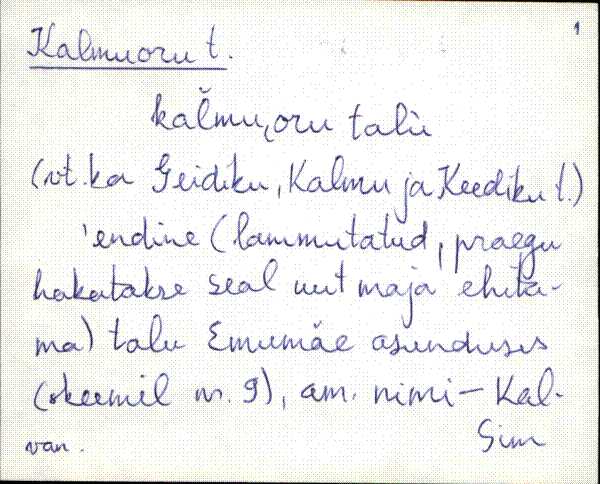 1
Kalmuoru t.
kal̆mu‿oru talù
(vt. ka Geidiku, Kalmu ja Keediku t.)
'endine (lammutatud, praegu
hakatakse seal uut maja ehita-
ma) talu Emumäe asunduses
(skeemil nr. 9), am. nimi - Kal-
van. Sim